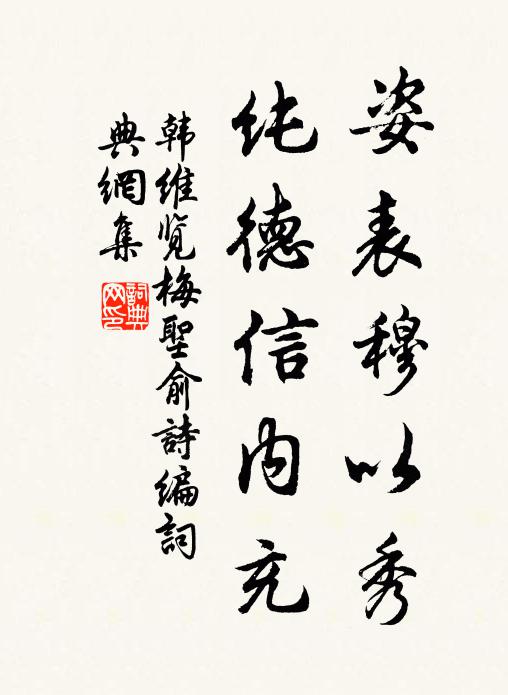 姿表穆以秀
纯德信内充
韩維览梅聖俞詩编詞
典網集
詞典網印